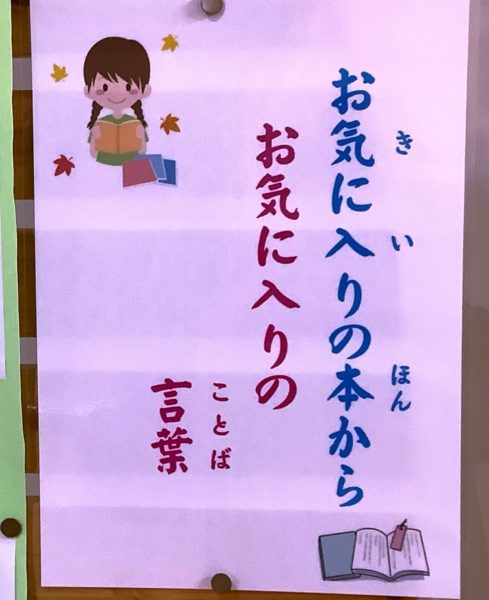 お気に入りの本から
お気に入りの
言葉
き
い
ほん
ことば